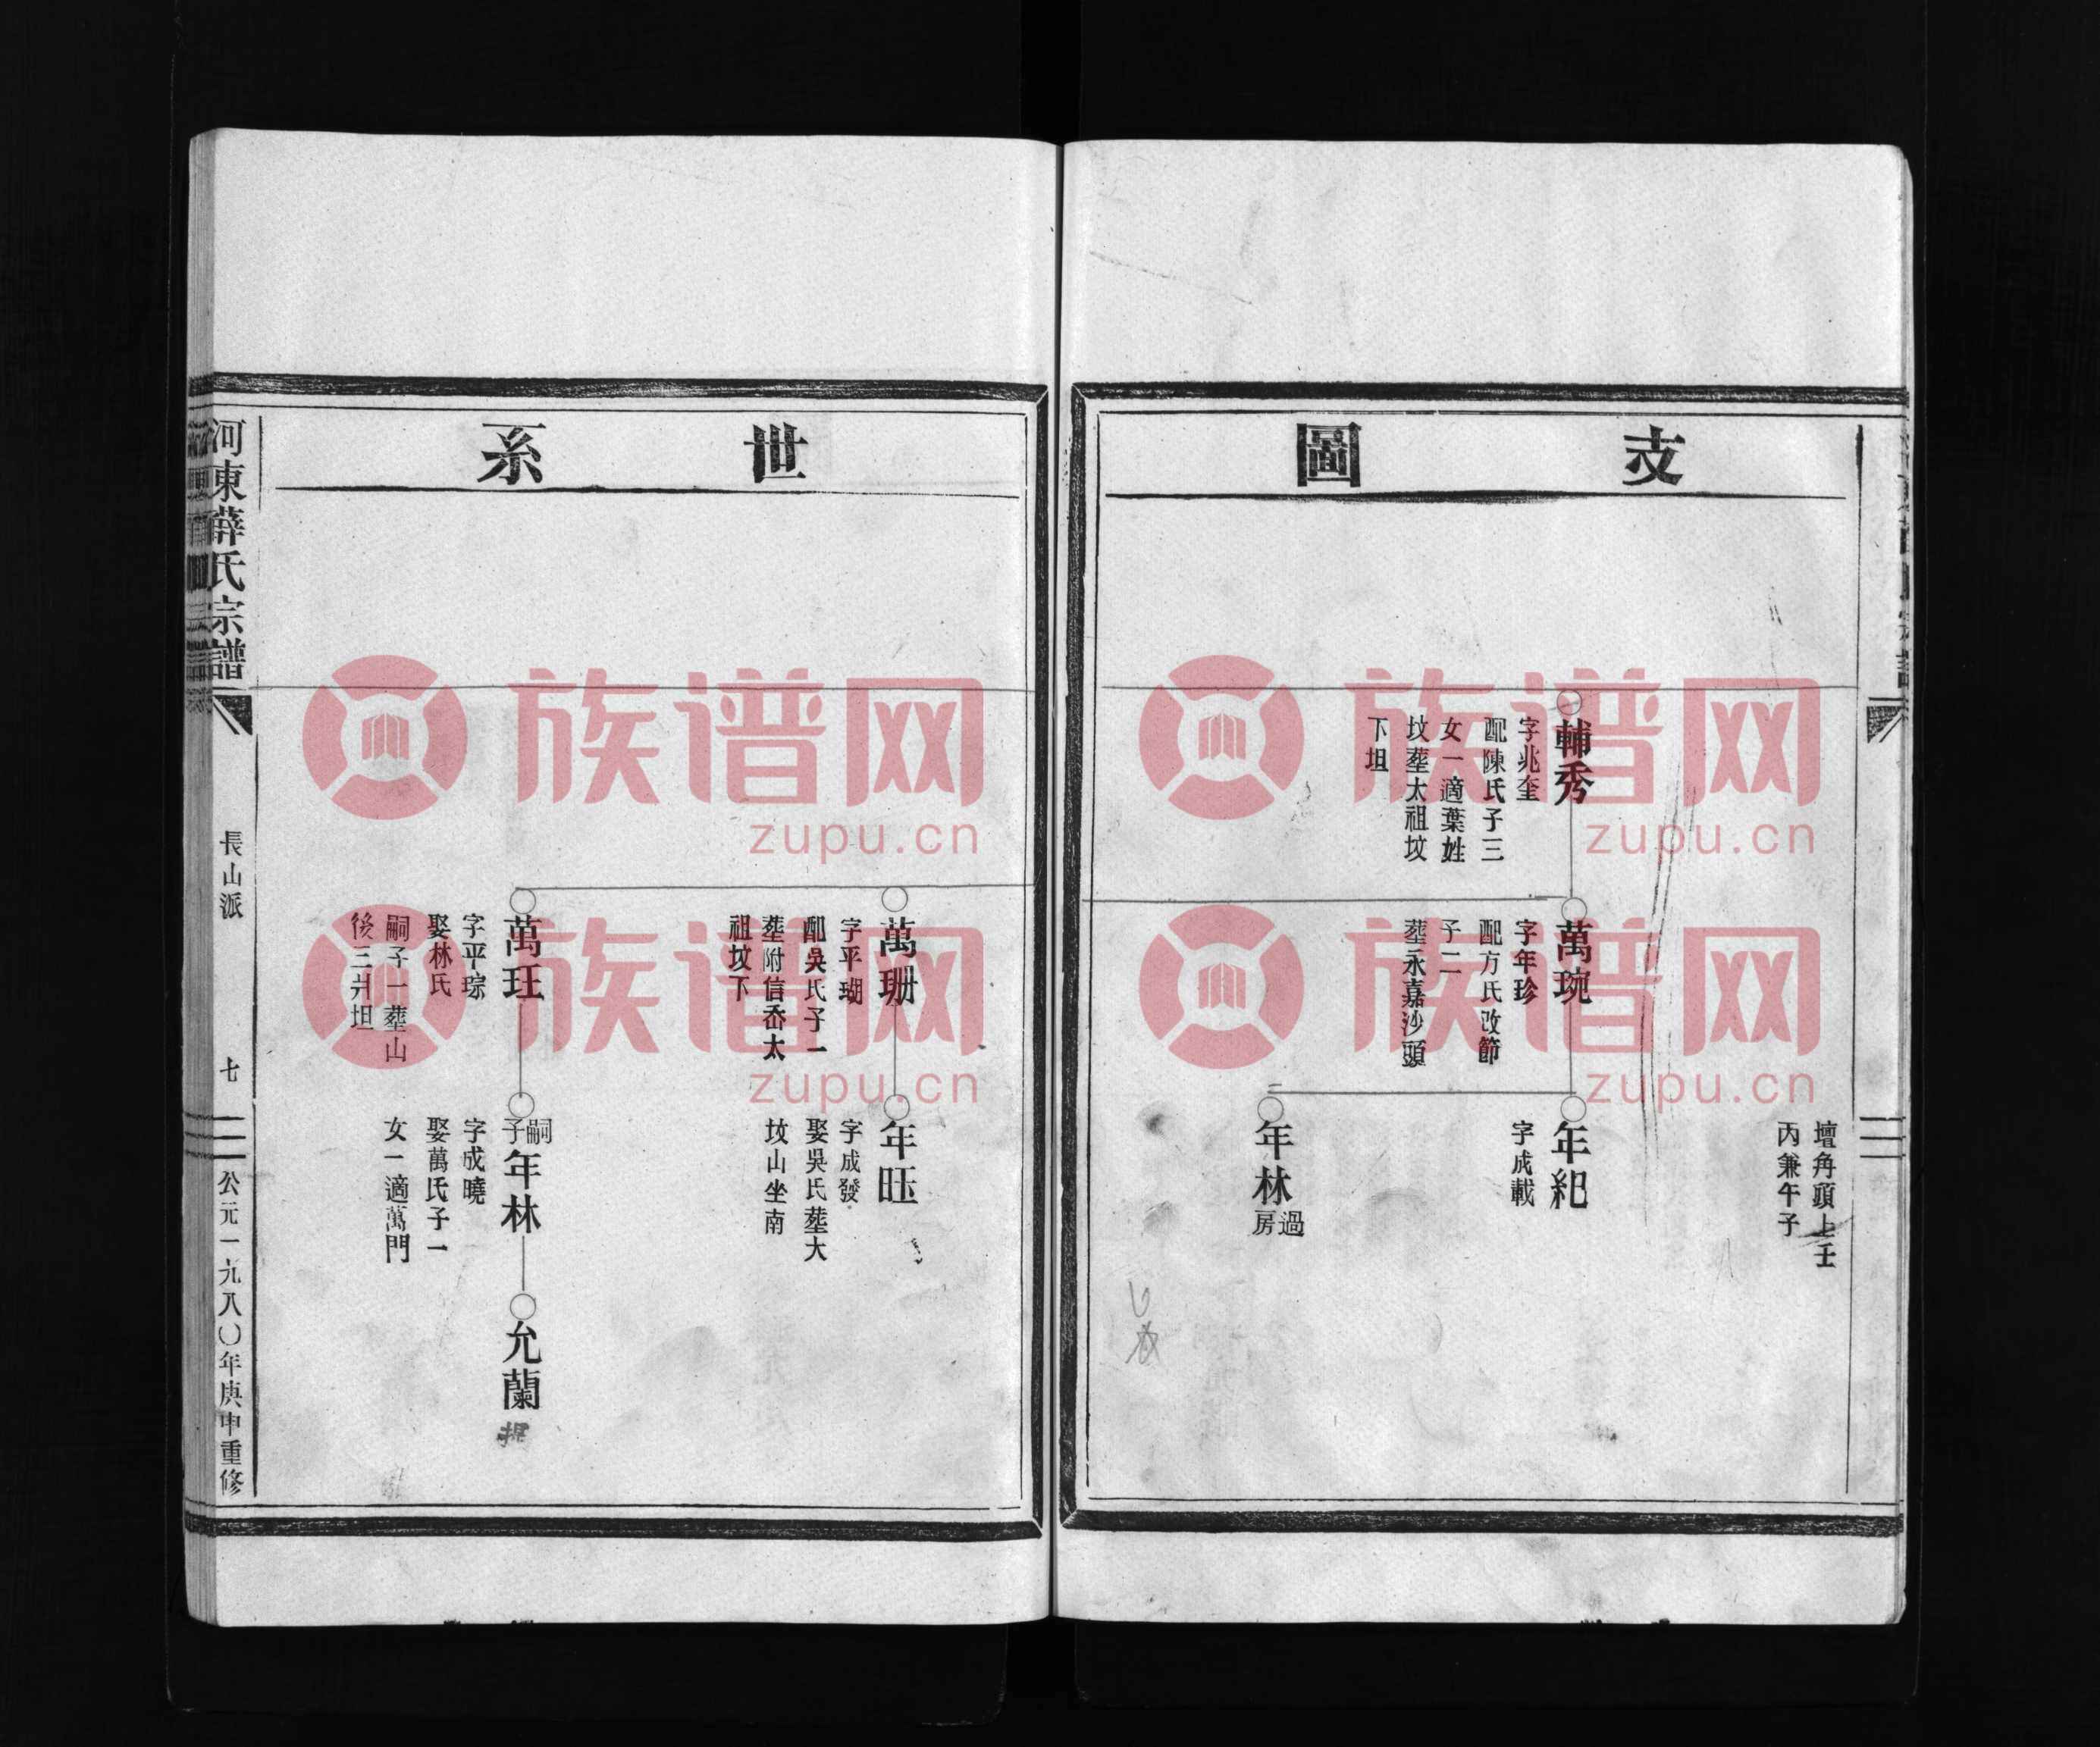 支圖
壇角頭上壬
丙兼午子
輔秀
字兆奎
配陳氏子三
女一適葉姓
坟塟太祖坟
下坦
萬琬
字年珍
配方氏改節
子二
塟永嘉沙頭
年紀
字成載
年林
過房
世系
萬珊
字平瑚
配吳氏子一
塟附信岙太
祖坟下
年旺
字成發
娶吳氏塟大
坟山坐南
萬玨
字平琮
娶林氏
嗣子一塟山
後三井坦
嗣子
年林
字成曉
娶萬氏子一
女一適萬門
允蘭
河東薛氏宗譜
長山派
七
公元一九八〇年庚申重修
族谱网
zupu.cn
族谱网
zupu.cn
族谱网
zupu.cn
族谱网
zupu.cn